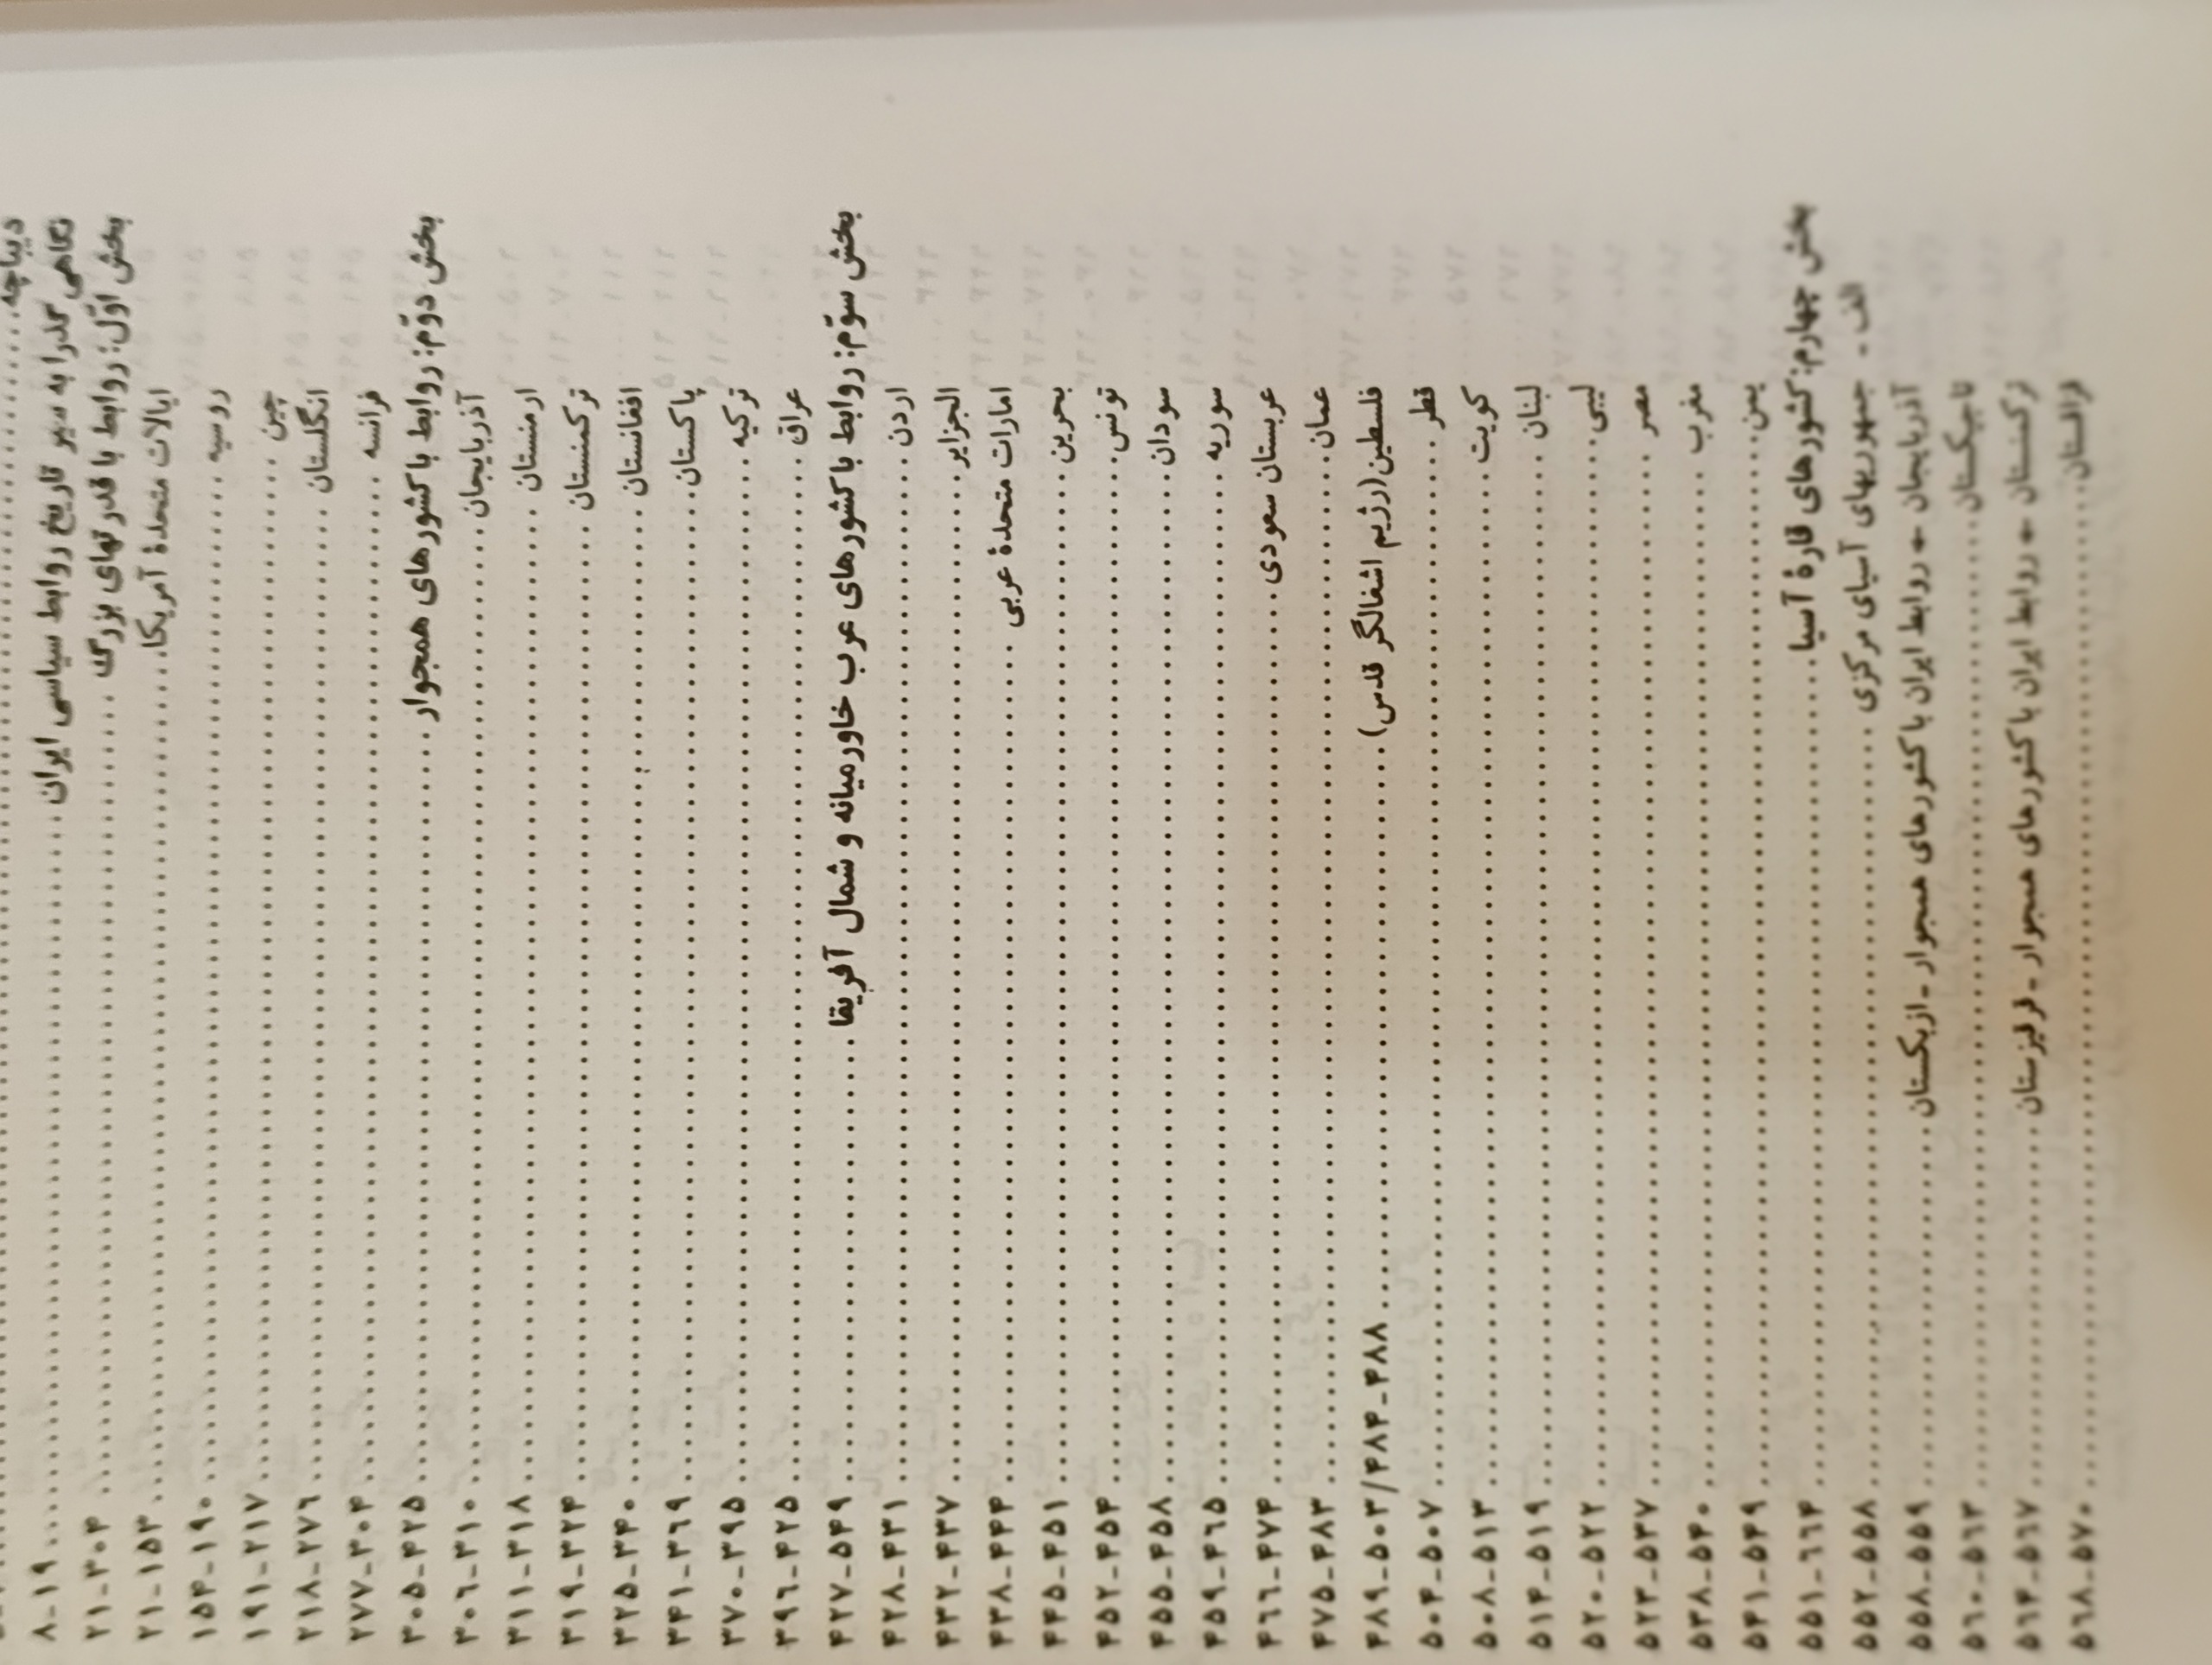 دیباچه
نگاهی گذرا به سیر تاریخ روابط سیاسی ایران ۸-۱۹
بخش اوّل: روابط با قدرتهای بزرگ ۲۱-۳۰۴
ایالات متحدهٔ آمریکا ۲۱-۱۵۳
روسیه ۱۵۴-۱۹۰
چین ۱۹۱-۲۱۷
انگلستان ۲۱۸-۲۷۶
فرانسه ۲۷۷-۳۰۴
بخش دوّم: روابط با کشورهای همجوار ۳۰۵-۴۲۵
آذربایجان ۳۰۶-۳۱۰
ارمنستان ۳۱۱-۳۱۸
ترکمنستان ۳۱۹-۳۲۴
افغانستان ۳۲۵-۳۴۰
پاکستان ۳۴۱-۳۶۹
ترکیه ۳۷۰-۳۹۵
عراق ۳۹۶-۴۲۵
بخش سوّم: روابط با کشورهای عرب خاورمیانه و شمال آفریقا ۴۲۷-۵۴۹
اردن ۴۲۸-۴۳۱
الجزایر ۴۳۲-۴۳۷
امارات متحدهٔ عربی ۴۳۸-۴۴۴
بحرین ۴۴۵-۴۵۱
تونس ۴۵۲-۴۵۴
سودان ۴۵۵-۴۵۸
سوریه ۴۵۹-۴۶۵
عربستان سعودی ۴۶۶-۴۷۴
عمان ۴۷۵-۴۸۳
فلسطین(رژیم اشغالگر قدس) ۴۸۴-۴۸۸/۴۸۹-۵۰۳
قطر ۵۰۴-۵۰۷
کویت ۵۰۸-۵۱۳
لبنان ۵۱۴-۵۱۹
لیبی ۵۲۰-۵۲۲
مصر ۵۲۳-۵۳۷
مغرب ۵۳۸-۵۴۰
یمن ۵۴۱-۵۴۹
بخش چهارم: کشورهای قارهٔ آسیا ۵۵۱-۶۶۴
الف - جمهوریهای آسیای مرکزی ۵۵۲-۵۵۸
آذربایجان ← روابط ایران با کشورهای همجوار - ازبکستان ۵۵۸-۵۵۹
تاجیکستان ۵۶۰-۵۶۳
ترکمنستان ← روابط ایران با کشورهای همجوار - قرقیزستان ۵۶۴-۵۶۷
قزاقستان ۵۶۸-۵۷۰